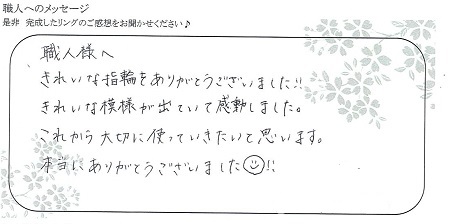 職人へのメッセージ
是非 完成したリングのご感想をお聞かせください♪
職人様へ
きれいな指輪をありがとうございました!!
きれいな模様が出ていて感動しました。
これから大切に使っていきたいと思います。
本当にありがとうございました☺!!